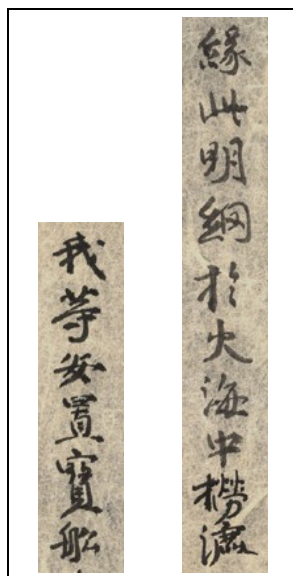 緣此明網於大海中撈漉
我等安置寶舩